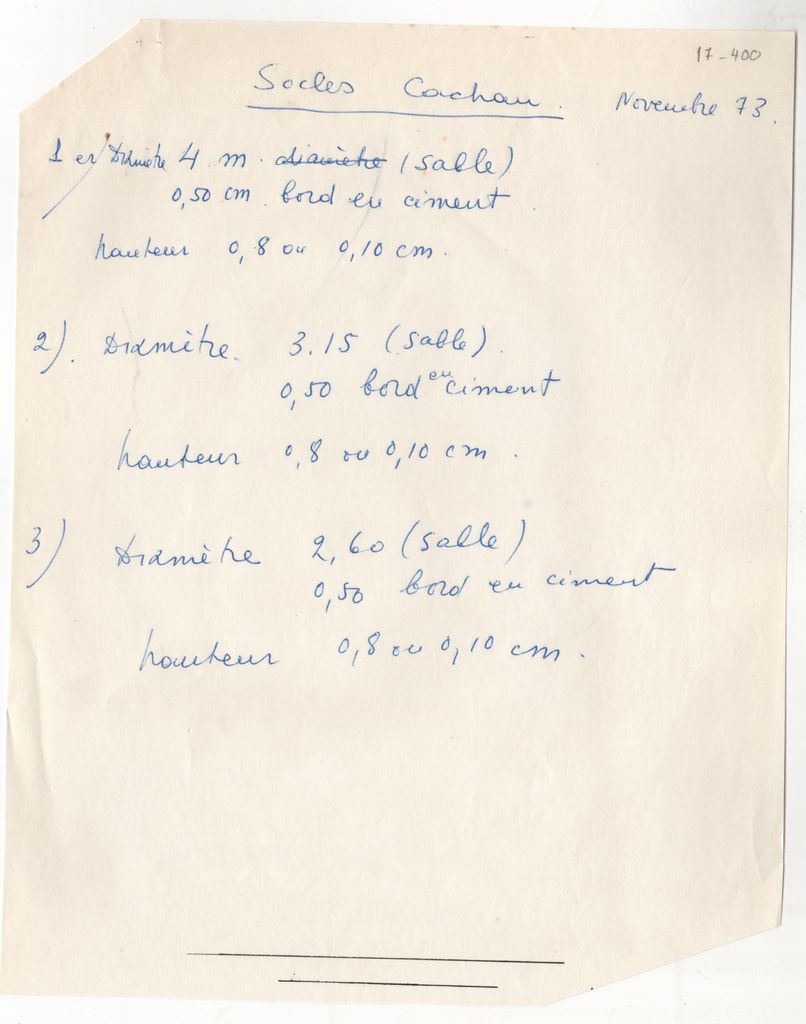 17-400
Socles Cachan.
Novembre 73.
1er/ Diamètre 4 m. diamètre (sable)
0,50 cm bord en ciment.
hauteur 0,8 ou 0,10 cm.
2). Diamètre. 3.15 (sable).
0,50 bord en ciment
hauteur 0,8 ou 0,10 cm.
3) Diamètre 2,60 (sable)
0,50 bord en ciment
hauteur 0,8 ou 0,10 cm.